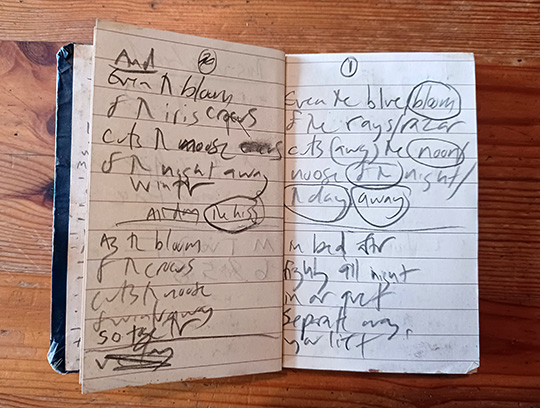 And
2
Even π bloom
of π iris crocus
cuts π moose
of π night away
winter
the kiss
As π bloom
of π crocus
cuts π noose
of winter away
so the
1
Even the blue bloom
of the rays/razor
cuts (away) the noon/
noose of the night/
π day away
in bed after
fighting all night
in or quiet
separate away,